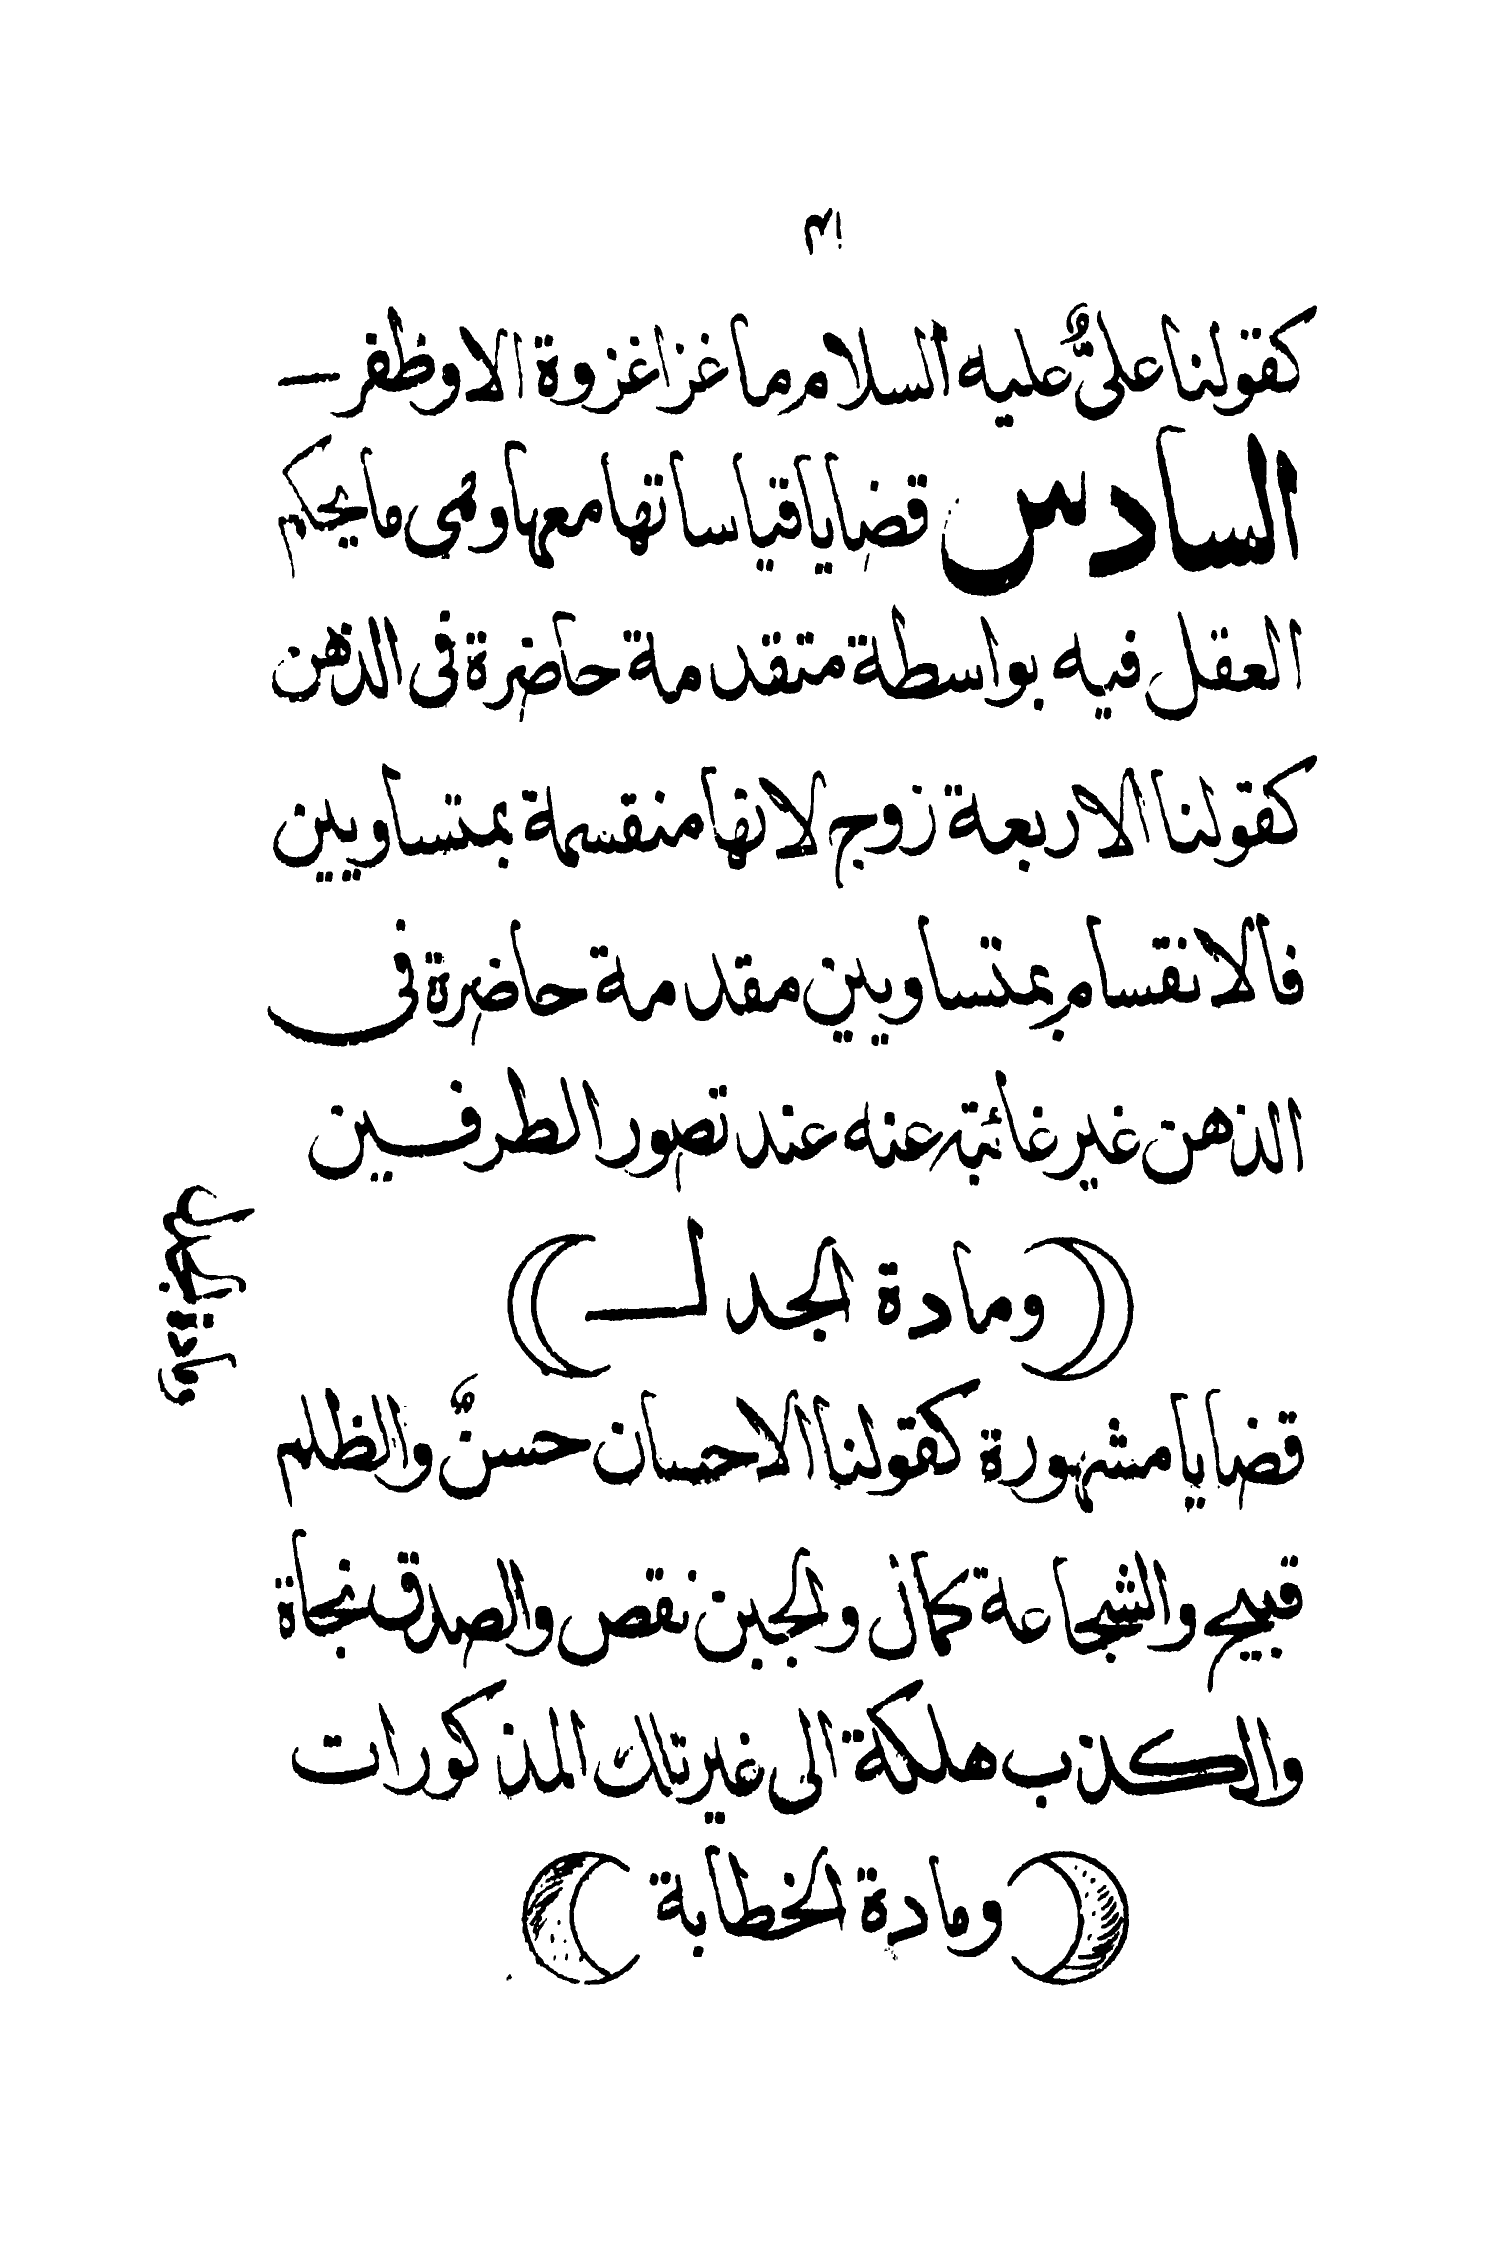 ٤١
كقولنا علىٌّ عليه السلام ما غزا غزوة الا وظفر ـ
السادس قضايا قياساتها معها وهى ما يحكم
العقل فيه بواسطة متقدمة حاضرة فى الذهن
كقولنا الاربعة زوج لانها منقسمة بمتساويين
فالانقسام بمتساويين مقدمة حاضرة فى
الذهن غير غائبة عنه عند تصور الطرفين
(ومادة الجدل)
ومادة الجدل
قضايا مشهورة كقولنا الاحسان حسنٌ والظلم
قبيح والشجاعة كمال والجبن نقص والصدق نجاة
والكذب هلكة الى غير تلك المذكورات
(ومادة الخطابة)